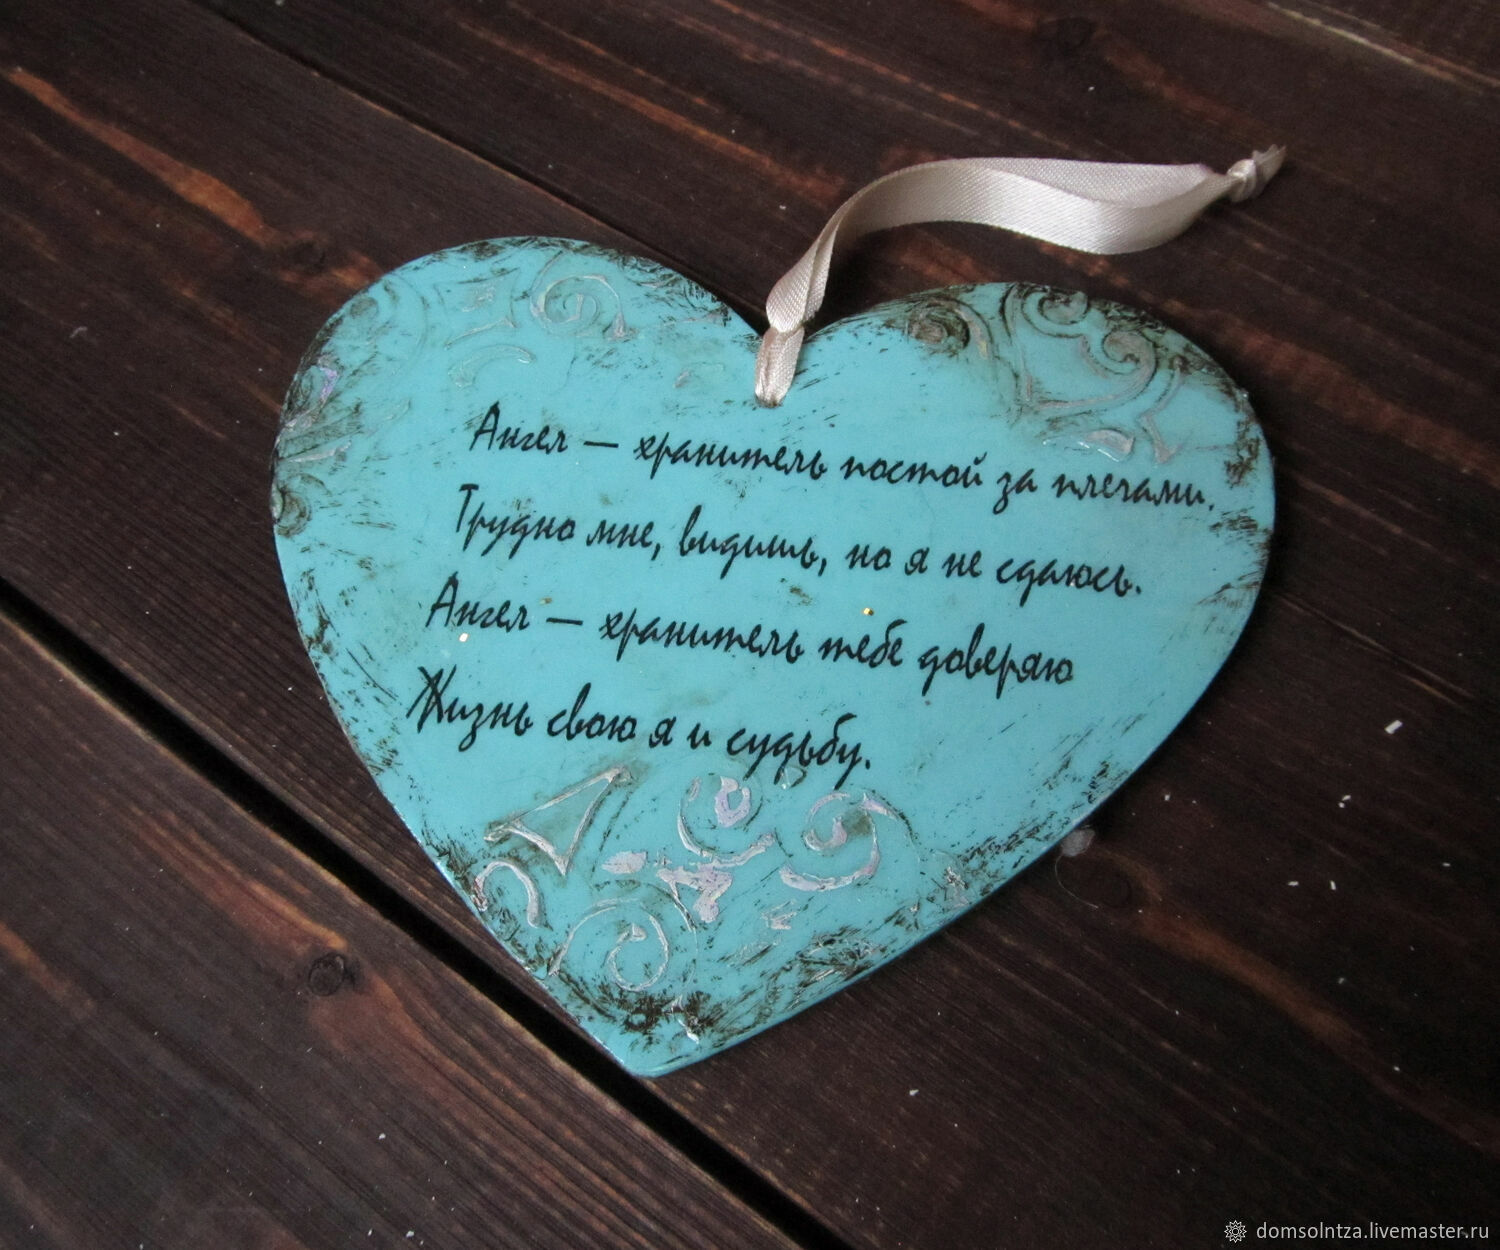 Ангел — хранитель постой за плечами.
Трудно мне, видишь, но я не сдаюсь.
Ангел — хранитель тебе доверяю
Жизнь свою я и судьбу.
domsolntza.livemaster.ru